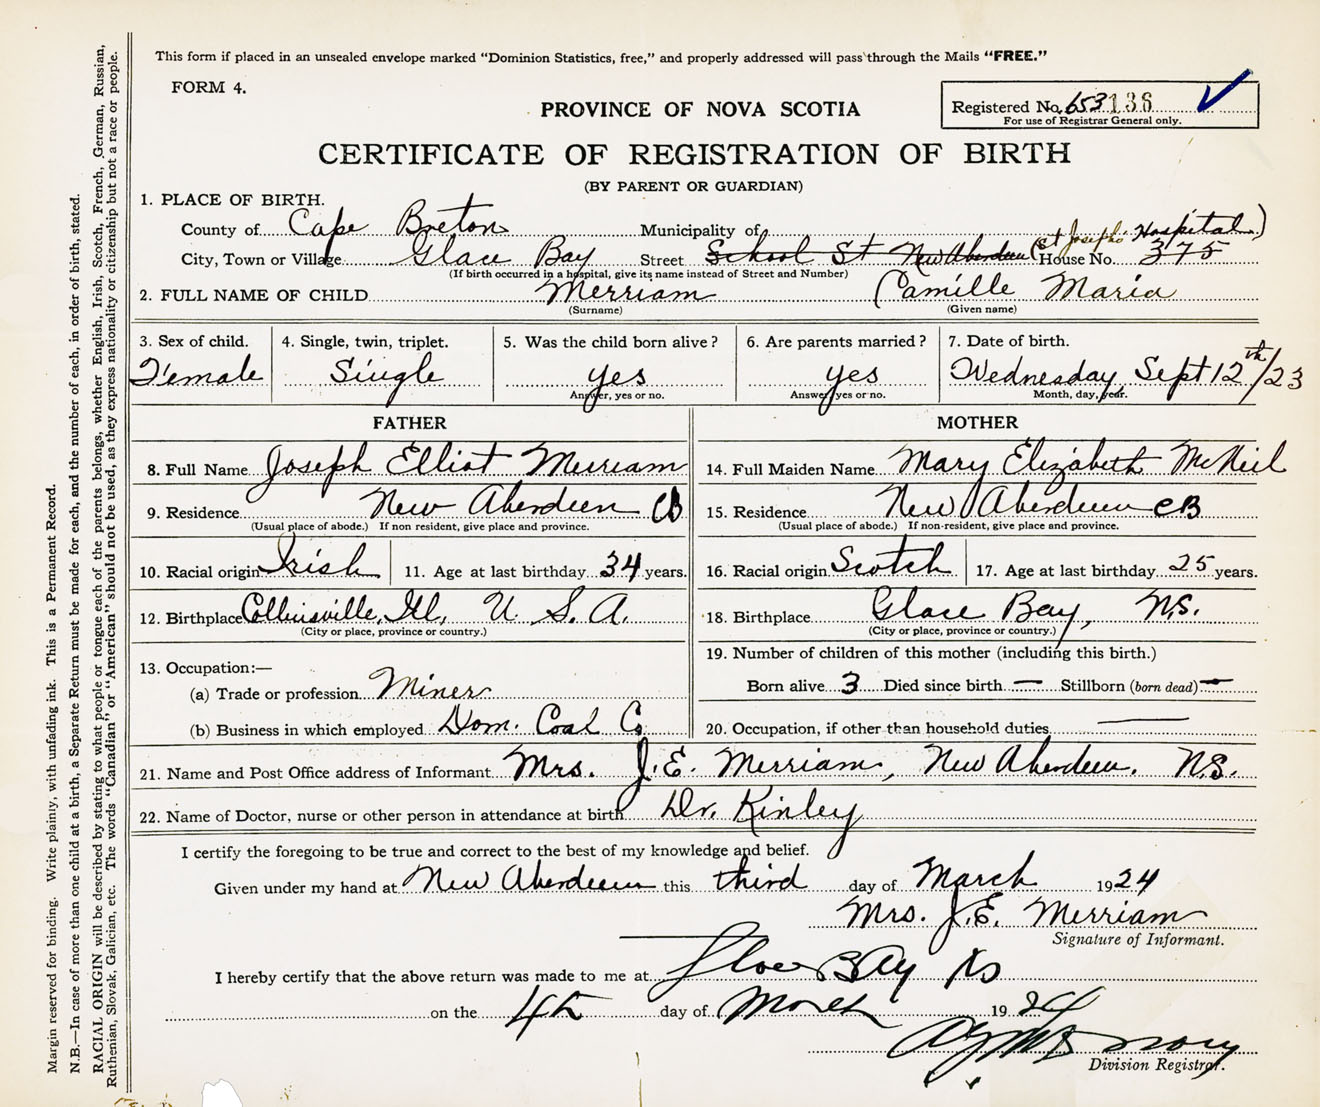 This form if placed in an unsealed envelope marked “Dominion Statistics, free,” and properly addressed will pass through the Mails “FREE.”
FORM 4.
PROVINCE OF NOVA SCOTIA
Registered No. 653136
For use of Registrar General only.
CERTIFICATE OF REGISTRATION OF BIRTH
(BY PARENT OR GUARDIAN)
1. PLACE OF BIRTH.
County of Cape Breton Municipality of
(St Joseph's Hospital)
City, Town or Village Glace Bay Street School St New Aberdeen House No. 375
(If birth occurred in a hospital, give its name instead of Street and Number)
2. FULL NAME OF CHILD Merriam Camille Maria
(Surname) (Given name)
3. Sex of child. 4. Single, twin, triplet. 5. Was the child born alive? 6. Are parents married? 7. Date of birth.
Female Single yes yes Wednesday Sept 12th/23
Answer, yes or no. Answer, yes or no. Month, day, year.
FATHER MOTHER
8. Full Name Joseph Elliot Merriam 14. Full Maiden Name Mary Elizabeth McNeil
9. Residence New Aberdeen CB 15. Residence New Aberdeen CB
(Usual place of abode.) If non resident, give place and province. (Usual place of abode.) If non-resident, give place and province.
10. Racial origin Irish 11. Age at last birthday 34 years. 16. Racial origin Scotch 17. Age at last birthday 25 years.
12. Birthplace Collinsville, Ill, U. S. A. 18. Birthplace Glace Bay, N.S.
(City or place, province or country.) (City or place, province or country.)
13. Occupation:— 19. Number of children of this mother (including this birth.)
(a) Trade or profession Miner Born alive 3 Died since birth — Stillborn (born dead) —
(b) Business in which employed Dom. Coal Co. 20. Occupation, if other than household duties —
21. Name and Post Office address of Informant Mrs. J.E. Merriam, New Aberdeen, N.S.
22. Name of Doctor, nurse or other person in attendance at birth Dr. Kinley
I certify the foregoing to be true and correct to the best of my knowledge and belief.
Given under my hand at New Aberdeen this third day of March 1924
Mrs. J.E. Merriam
Signature of Informant.
I hereby certify that the above return was made to me at Glace Bay NS
on the 4th day of March 1924
Division Registrar.
Margin reserved for binding. Write plainly, with unfading ink. This is a Permanent Record.
N.B.—In case of more than one child at a birth, a Separate Return must be made for each, and the number of each, in order of birth, stated.
RACIAL ORIGIN will be described by stating to what people or tongue each of the parents belongs, whether English, Irish, Scotch, French, German, Russian,
Ruthenian, Slovak, Galician, etc. The words “Canadian” or “American” should not be used, as they express nationality or citizenship but not a race or people.